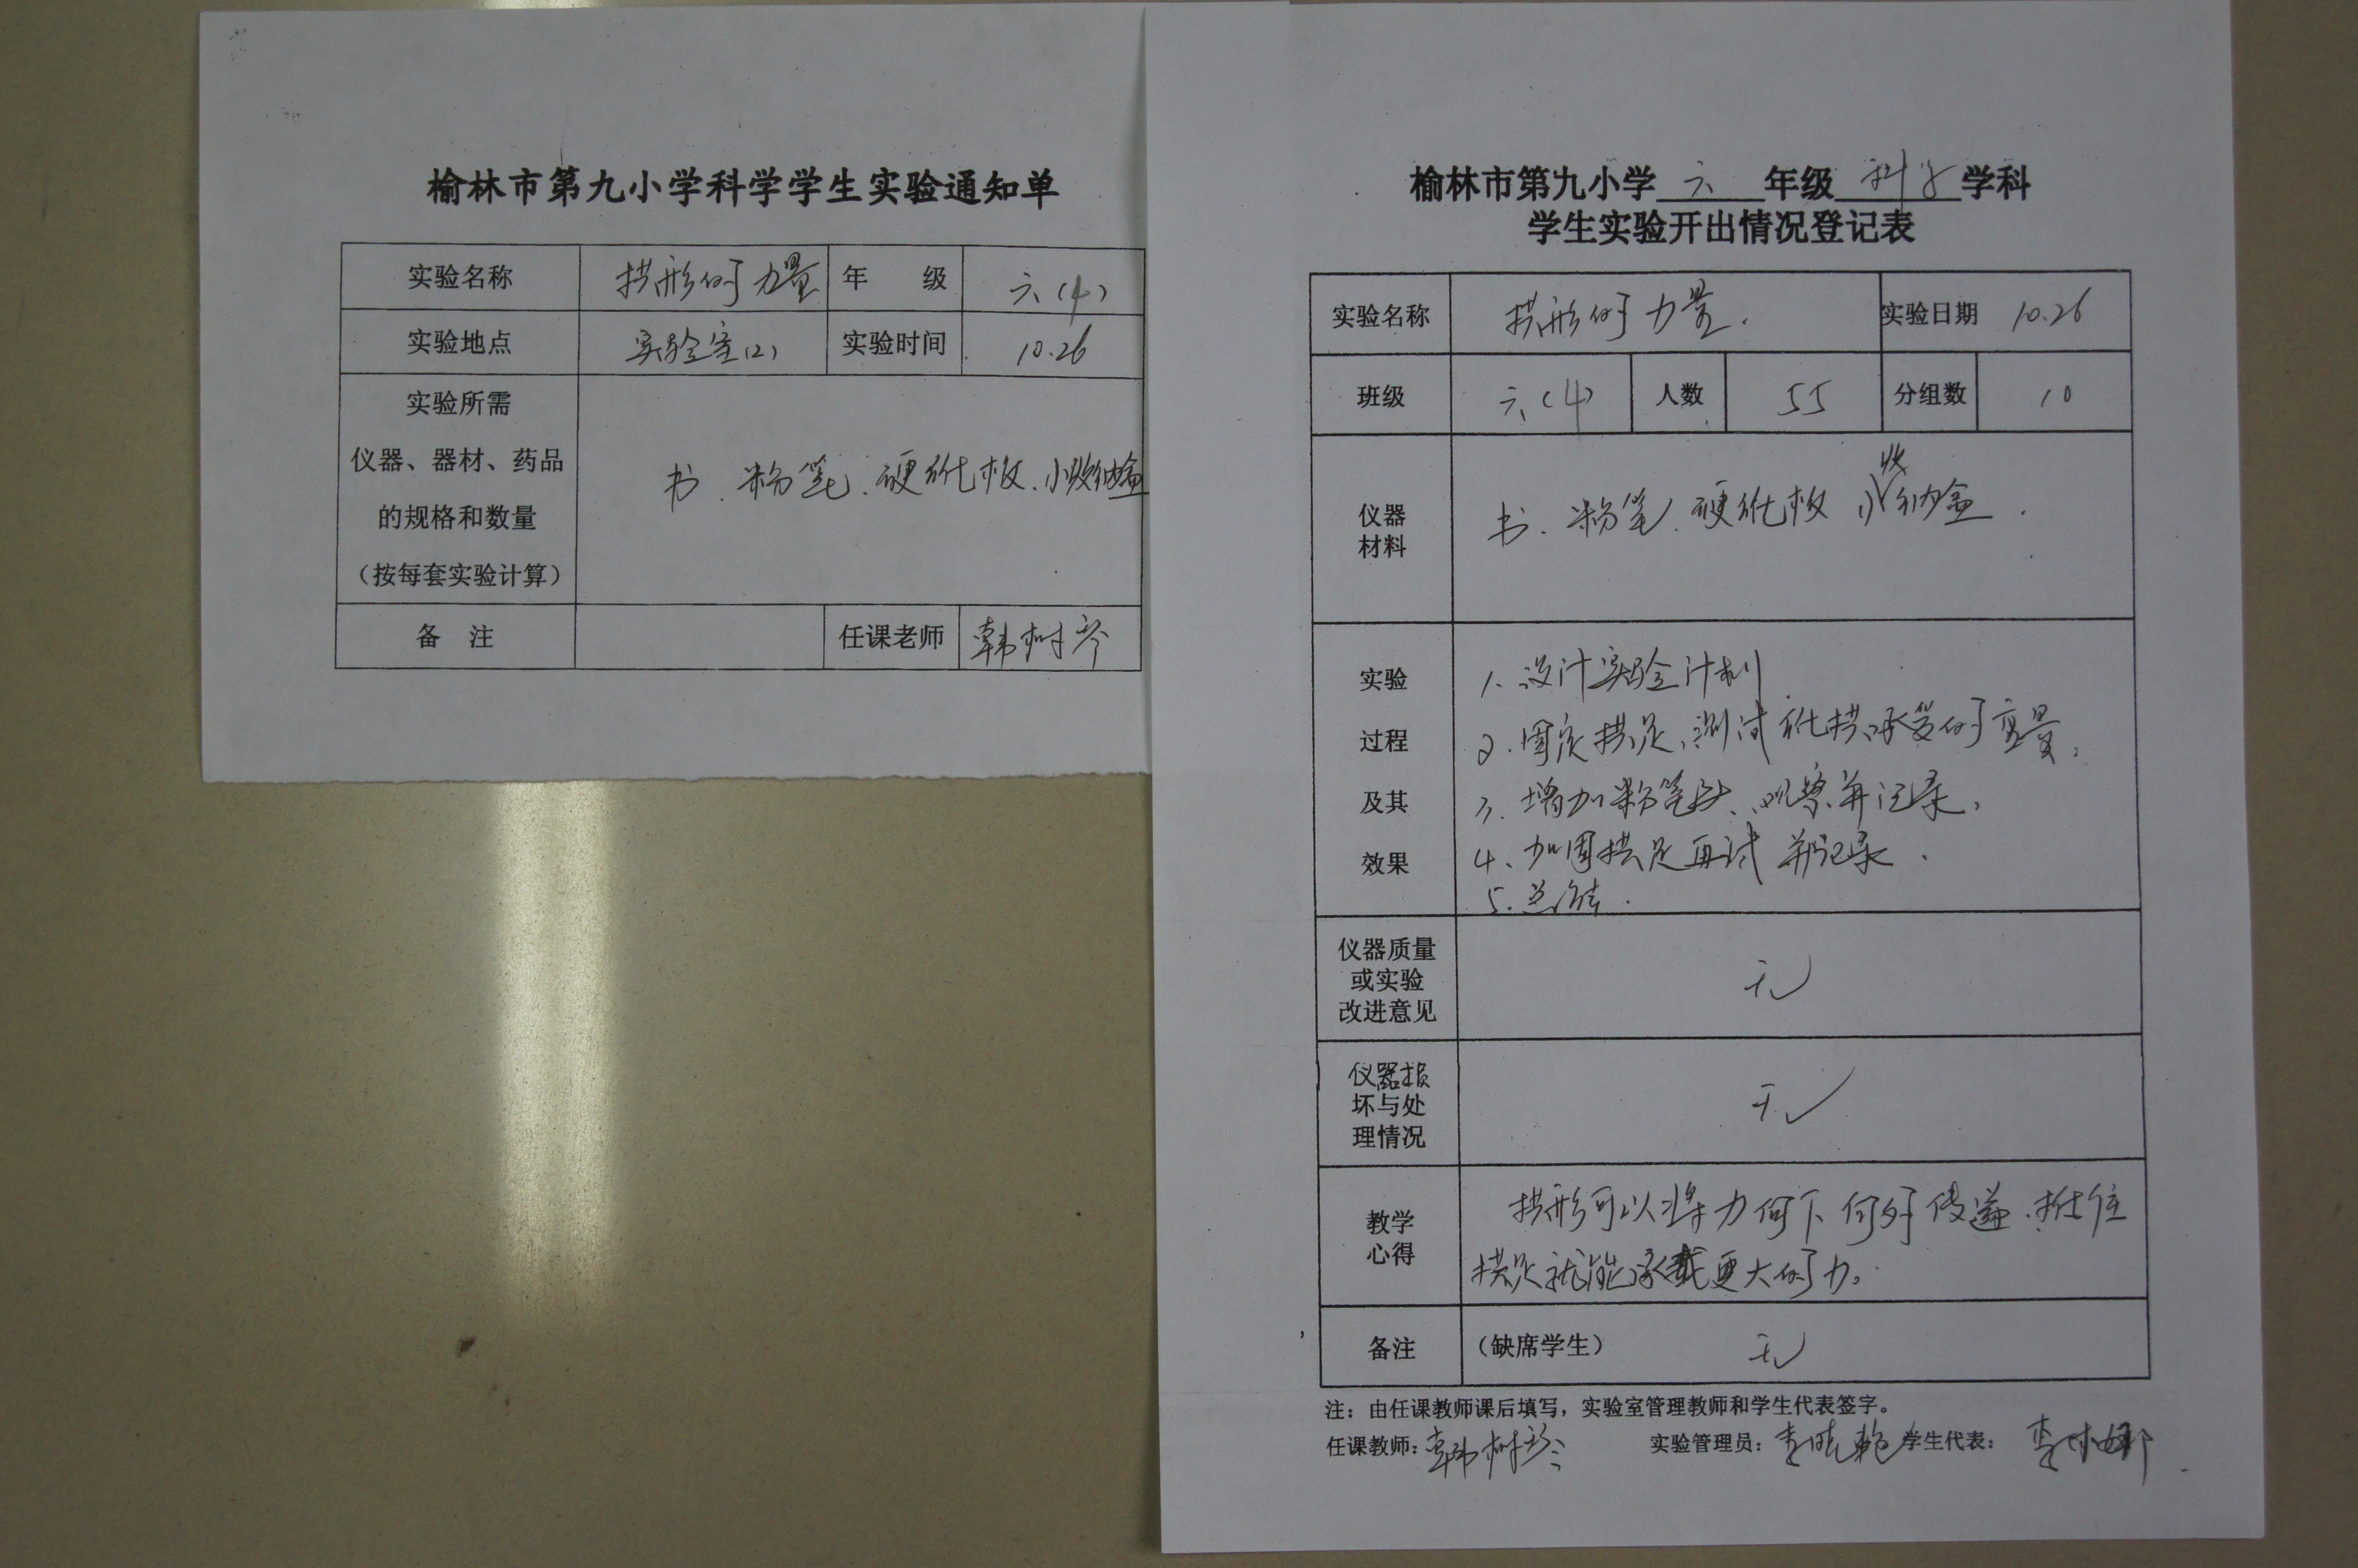 榆林市第九小学科学学生实验通知单
实验名称 拱形的力量 年 级 六(4)
实验地点 实验室(2) 实验时间 10.26
实验所需
仪器、器材、药品
的规格和数量
(按每套实验计算)
书、粉笔、硬纸板、小收纳盒
备 注 任课老师 韩树琴
榆林市第九小学 六 年级 科学 学科
学生实验开出情况登记表
实验名称 拱形的力量. 实验日期 10.26
班级 六(4) 人数 55 分组数 10
仪器
材料
书、粉笔、硬纸板 小收纳盒.
实验
过程
及其
效果
1、设计实验计划
2、固定拱足、测试纸拱承受的重量。
3、增加粉笔头、观察并记录。
4、加固拱足再试 并记录.
5、总结.
仪器质量
或实验
改进意见
无
仪器损
坏与处
理情况
无
教学
心得
拱形可以将力向下向外传递.抵住
拱足就能承载更大的力。
备注 (缺席学生) 无
注:由任课教师课后填写,实验室管理教师和学生代表签字。
任课教师:韩树琴 实验管理员:李晓艳 学生代表:李